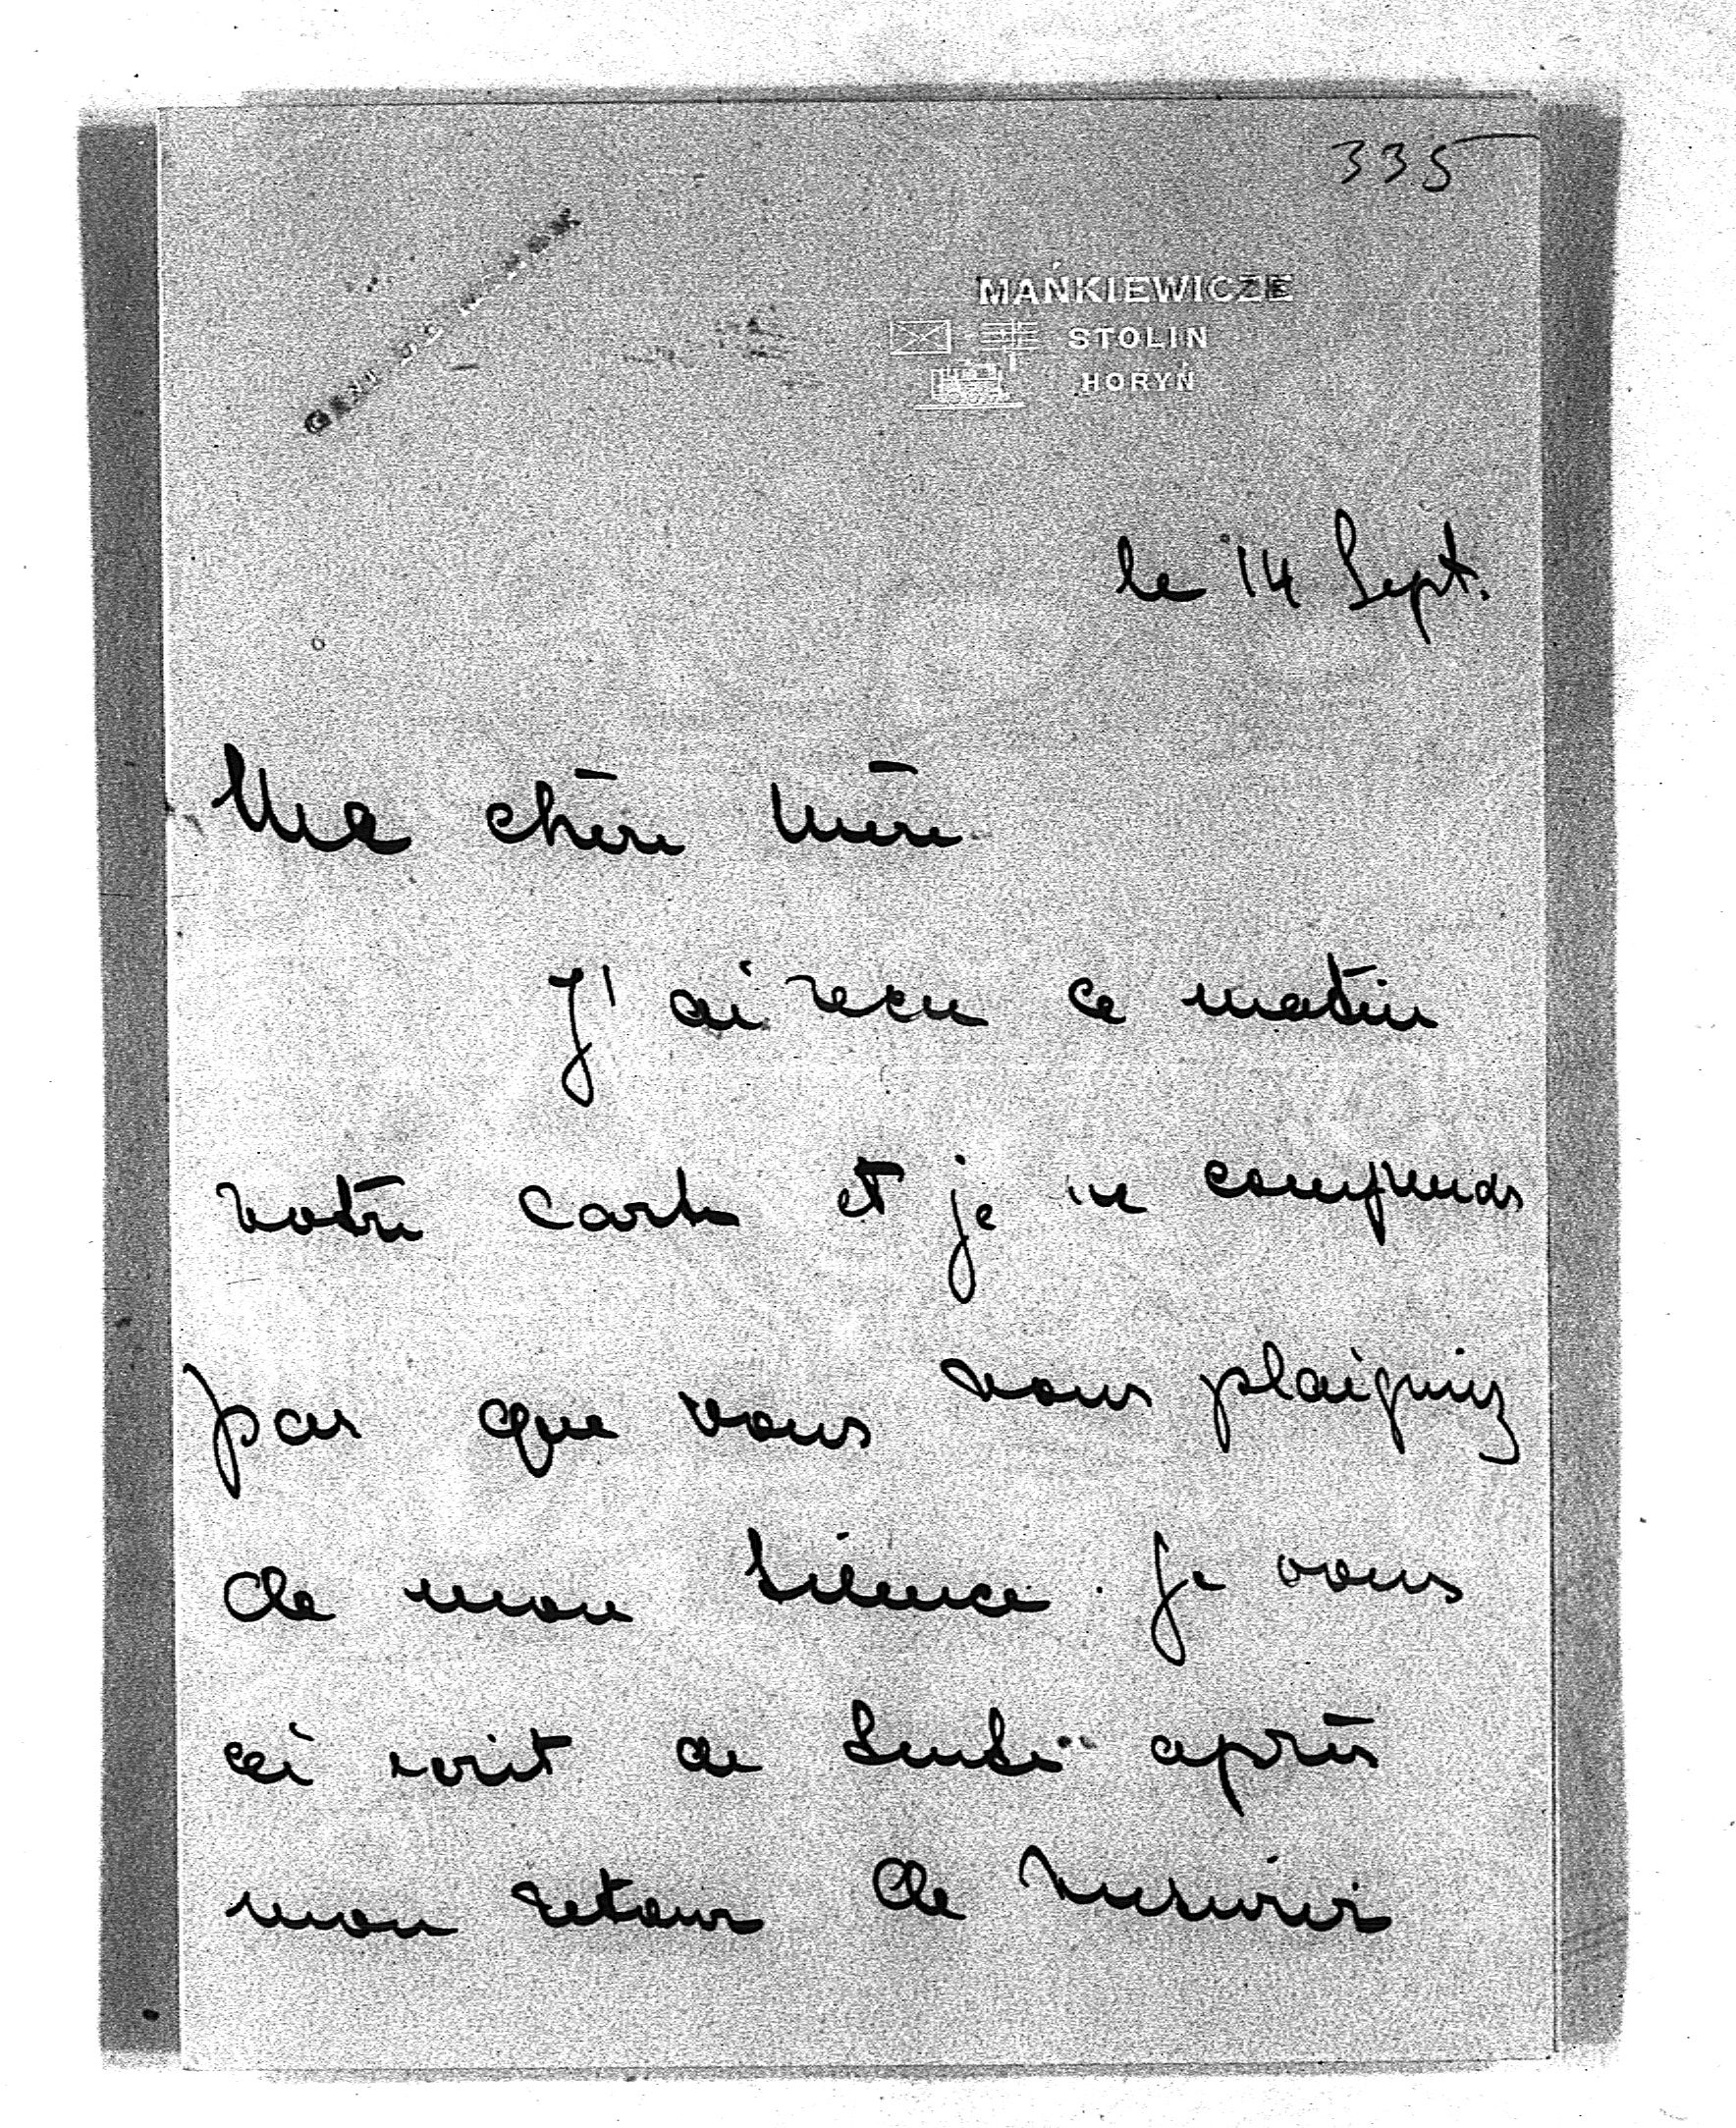 335
MAŃKIEWICZE
STOLIN
HORYŃ
le 14 Sept.
Ma chère Mère
J'ai recu ce matin
votre carte et je ne comprends
pas que vous vous plaigniez
de mon silence. Je vous
ai écrit de suite après
mon retour de